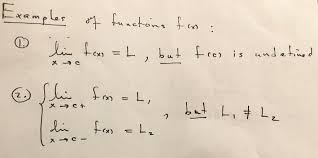 Examples of functions f(x) :
①. lim x→c f(x) = L , but f(c) is undefined
②. { lim x→c+ f(x) = L₁ ,
lim x→c- f(x) = L₂ , but L₁ ≠ L₂